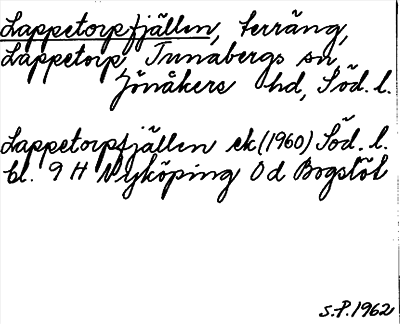 Lappetorpfjällen, terräng,
Lappetorp, Tunabergs sn,
Jönåkers hd, Söd. l.
Lappetorpfjällen ek (1960) Söd. l.
bl. 9 H Nyköping 0 d Bogslöt
S.P. 1962